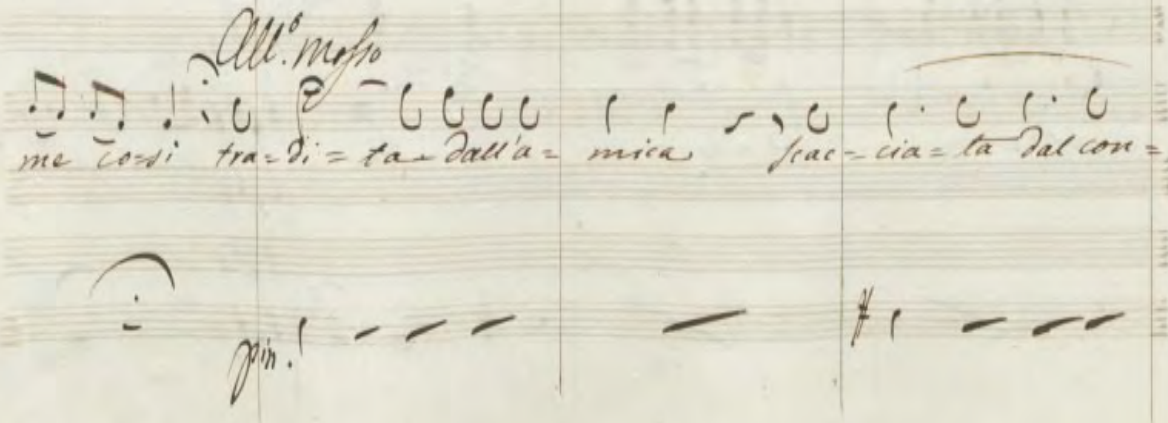 All.º mosso
me co=si tra=di=ta dall'a=mica scac=cia=ta dal con=
pia.